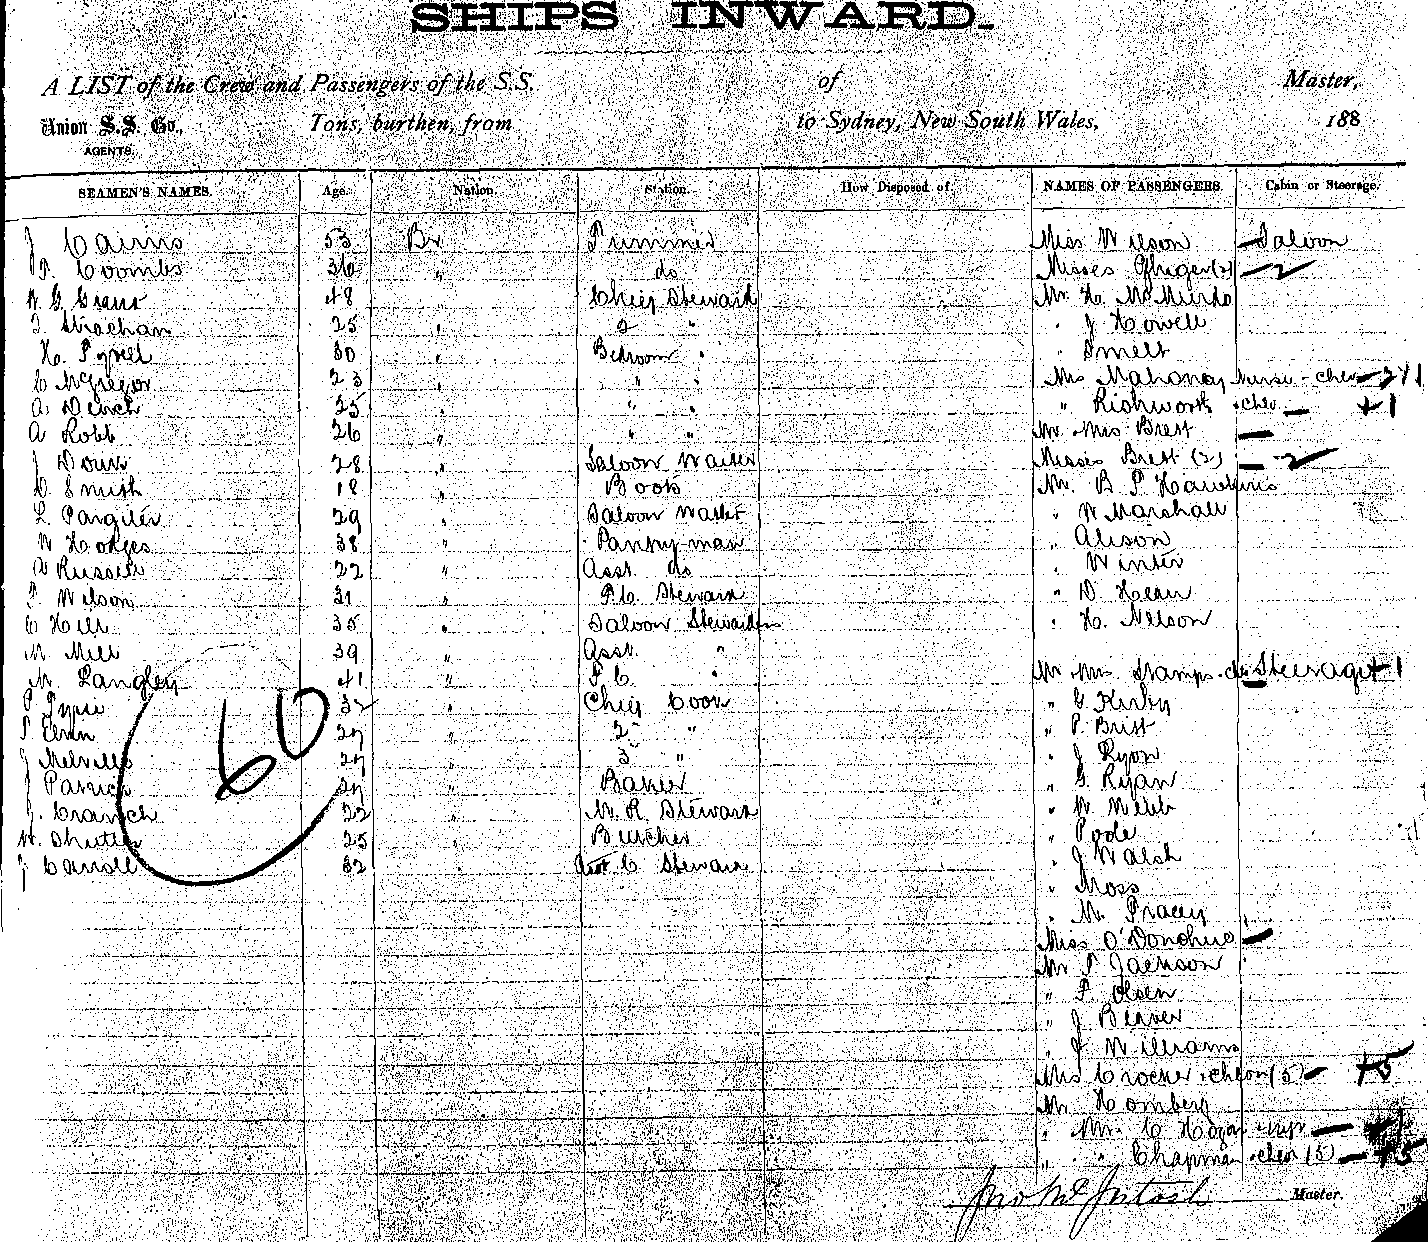 SHIPS INWARD.
A LIST of the Crew and Passengers of the S.S. of Master,
Union S.S. Co., Tons, burthen, from to Sydney, New South Wales, 188
AGENTS.
SEAMEN'S NAMES. Age. Nation. Station. How Disposed of. NAMES OF PASSENGERS. Cabin or Steerage.
J Cairns 53 Br Trimmer Miss Wilson Saloon
T. Coombs 36 " do Misses (2) 2
W G Grant 48 " Chief Steward Mr. H. McMurdo
Strachan 25 " 2 " " J Howell
H. Tyrell 30 " Bedroom " " Smelt
C McGregor 23 " " " Mrs Mahoney nurse - chn 2+1
A 25 " " " " Richworth chn +1
A Robb 26 " " " Mr Mrs Brett
J 28 " Saloon Waiter Misses Brett (2) 2
D. Smith 18 Boots Mr. B P Hawkins
L. Parquier 29 " Saloon Waiter " W Marshall
W Hodges 38 " Pantry man " Alison
A Russell 22 " Asst. do " Winter
T Wilson 31 " F.C. Steward " D Hean
C Hill 35 " Saloon Stewardess " H. Nelson
M. Mill 39 " Asst. "
M. Langley 41 " F C " Mr Mrs Stamps Steerage +1
32 " Chief Cook " G Kirby
T 27 " 2 " " P. Britt
J Melville 27 " 3 " " J Lyon
J Patrick 27 " Baker " G Ryan
J. Cranich 22 " M. R. Steward " W. Webb
W. Shutter 25 " Butcher " Poole
J Carroll 32 Asst C Steward " J Walsh
60
" Moss
" M. Tracey
Miss O'Donohue
Mr T Jackson
" T Olsen
" J Beaver
" J Williams
Mrs Crocker chn (5) +5
Mr Homberg
" Mrs C Hogan
" " Chapman chn (5) +5
Jno McIntosh Master.